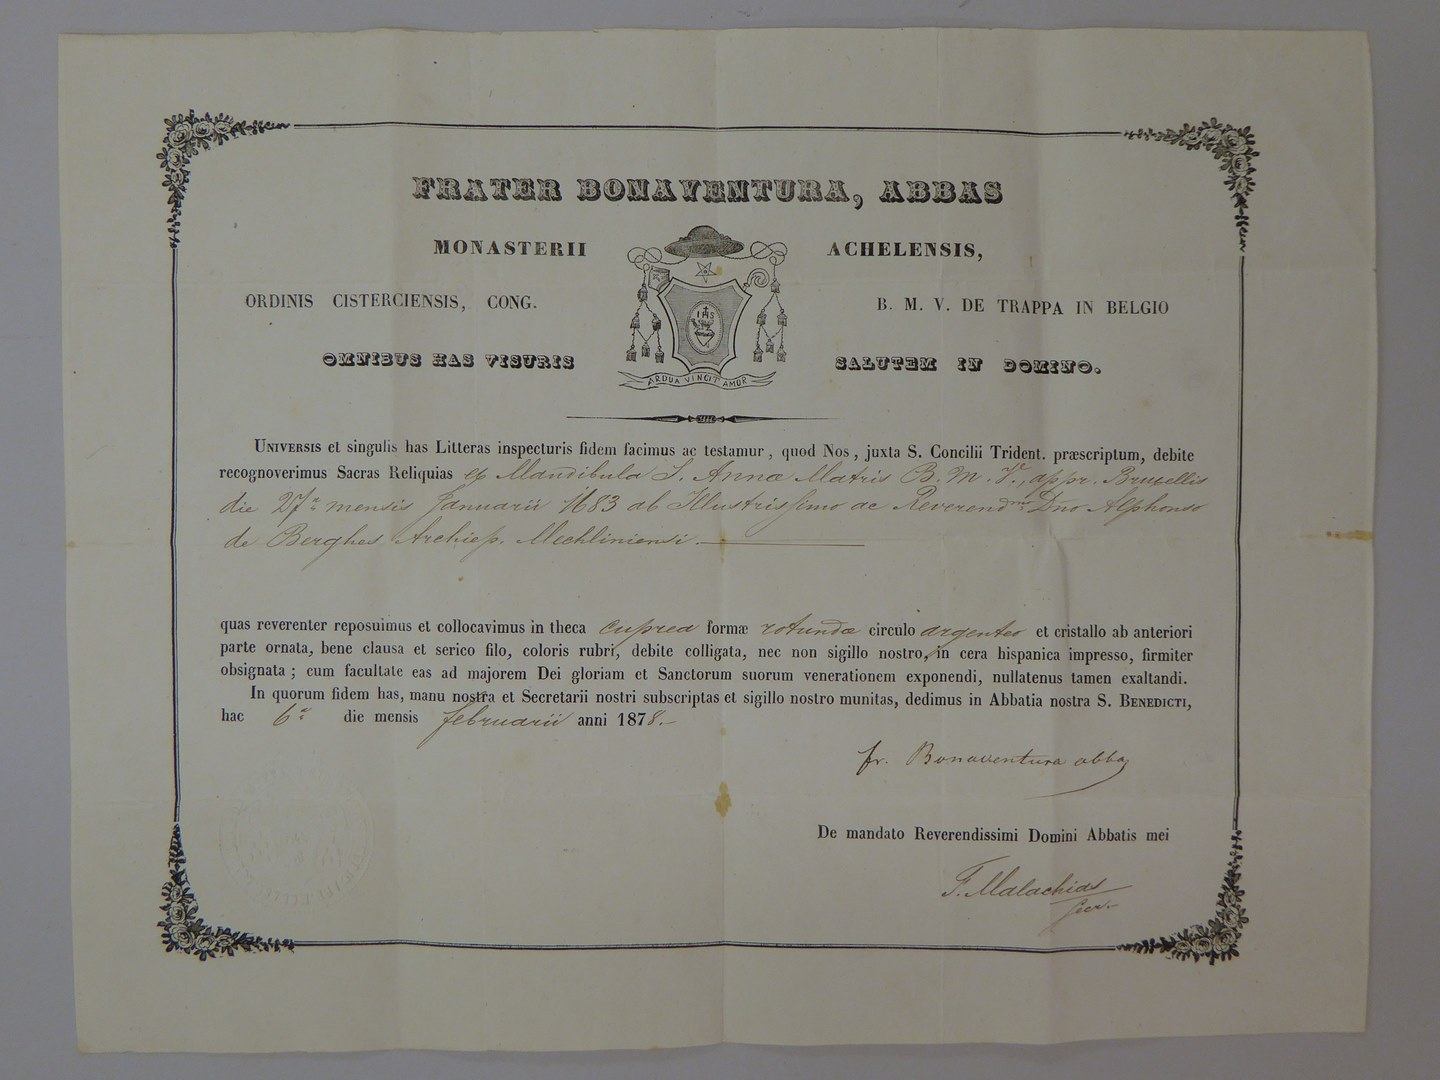 FRATER BONAVENTURA, ABBAS
MONASTERII ACHELENSIS,
ORDINIS CISTERCIENSIS, CONG. B. M. V. DE TRAPPA IN BELGIO
IHS
OMNIBUS HAS VISURIS SALUTEM IN DOMINO.
ARDUA VINCIT AMOR
UNIVERSIS et singulis has Litteras inspecturis fidem facimus ac testamur, quod Nos, juxta S. Concilii Trident. præscriptum, debite
recognoverimus Sacras Reliquias ex Mandibula S. Annæ Matris B. M. V., appr. Bruxellis
die 27ª mensis Januarii 1683 ab Illustrissimo ac Reverendmo Dno Alphonso
de Berghes Archiep. Mechliniensi.
quas reverenter reposuimus et collocavimus in theca cuprea formæ rotundæ circulo argenteo et cristallo ab anteriori
parte ornata, bene clausa et serico filo, coloris rubri, debite colligata, nec non sigillo nostro, in cera hispanica impresso, firmiter
obsignata ; cum facultate eas ad majorem Dei gloriam et Sanctorum suorum venerationem exponendi, nullatenus tamen exaltandi.
In quorum fidem has, manu nostra et Secretarii nostri subscriptas et sigillo nostro munitas, dedimus in Abbatia nostra S. BENEDICTI,
hac 6ª die mensis februarii anni 1878.-
fr. Bonaventura abbas
De mandato Reverendissimi Domini Abbatis mei
F. Malachias
Secr.